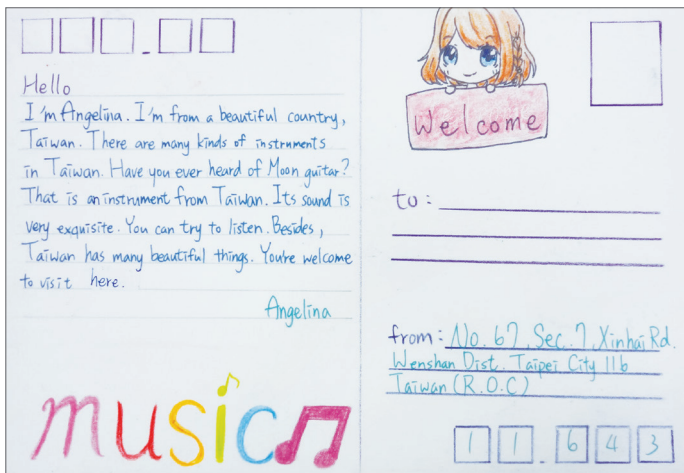 Hello
I'm Angelina. I'm from a beautiful country,
Taiwan. There are many kinds of instruments
in Taiwan. Have you ever heard of Moon guitar?
That is an instrument from Taiwan. Its sound is
very exquisite. You can try to listen. Besides,
Taiwan has many beautiful things. You're welcome
to visit here.
Angelina
music
Welcome
to:
from: No. 67, Sec. 7, Xinhai Rd.
Wenshan Dist. Taipei City 116
Taiwan (R.O.C)
1 1 . 6 4 3